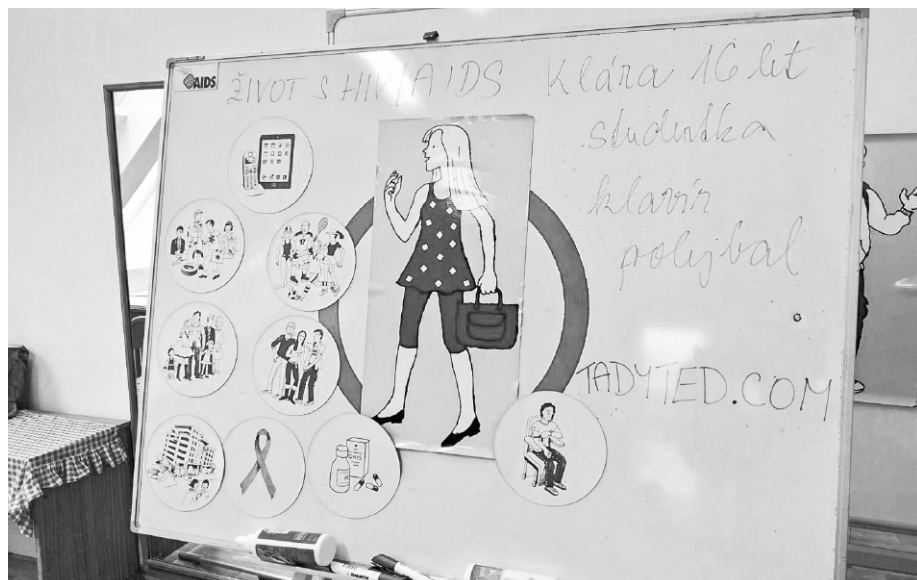 AIDS
ŽIVOT S HIV/AIDS
Klára 16 let
studentka
klavír
volejbal
TADYTED.COM